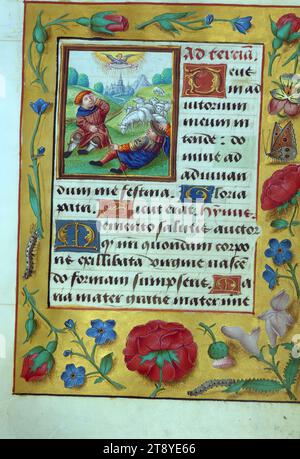 Ad terciam
Deus
in ad
iutorium
meum in
tende. do
mine ad
adiuuan
dum me festina. Gloria
patri. Sicut erat. Hymne.
Memento salutis auctor
Quod nostri quondam corpo
ris ex illibata virgine nascen
do formam sumpseris. Ma
ria mater gratie mater mie
alamy
Image ID: 2T8YE66
www.alamy.com